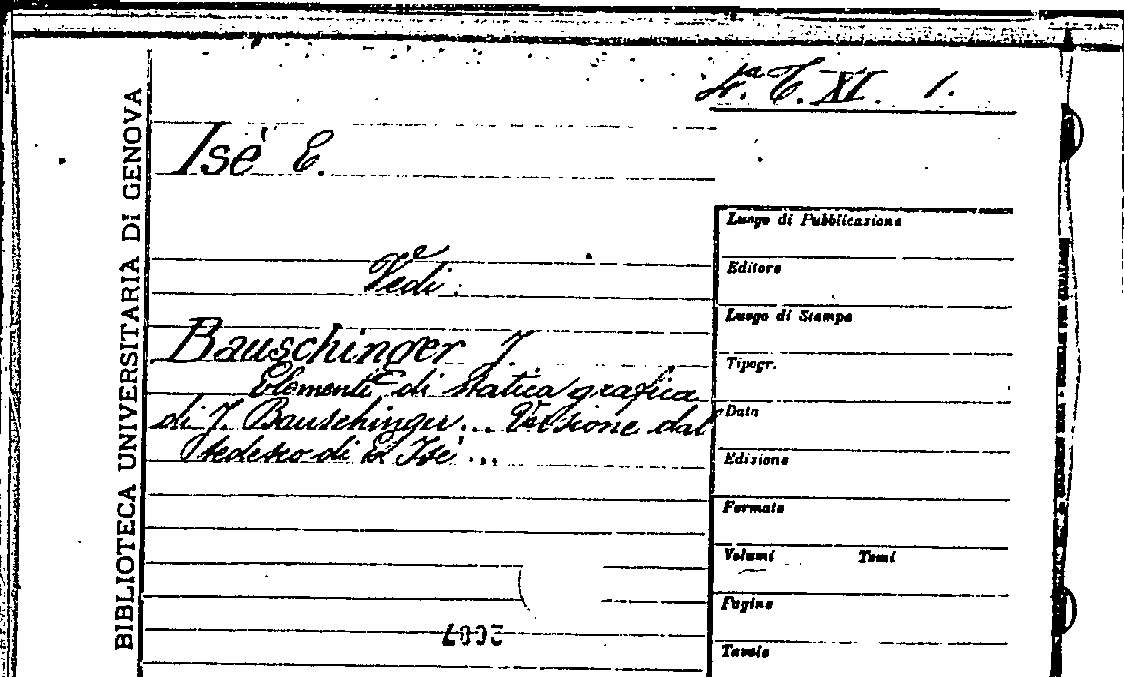 4.ª T. XI. 1.
BIBLIOTECA UNIVERSITARIA DI GENOVA
Isé E.
Vedi:
Bauschinger J.
Elementi di statica grafica
di J. Bauschinger... Versione dal
tedesco di E. Isé ...
Luogo di Pubblicazione
Editore
Luogo di Stampa
Tipogr.
Data
Edizione
Formato
Volumi Tomi
Pagine
Tavole